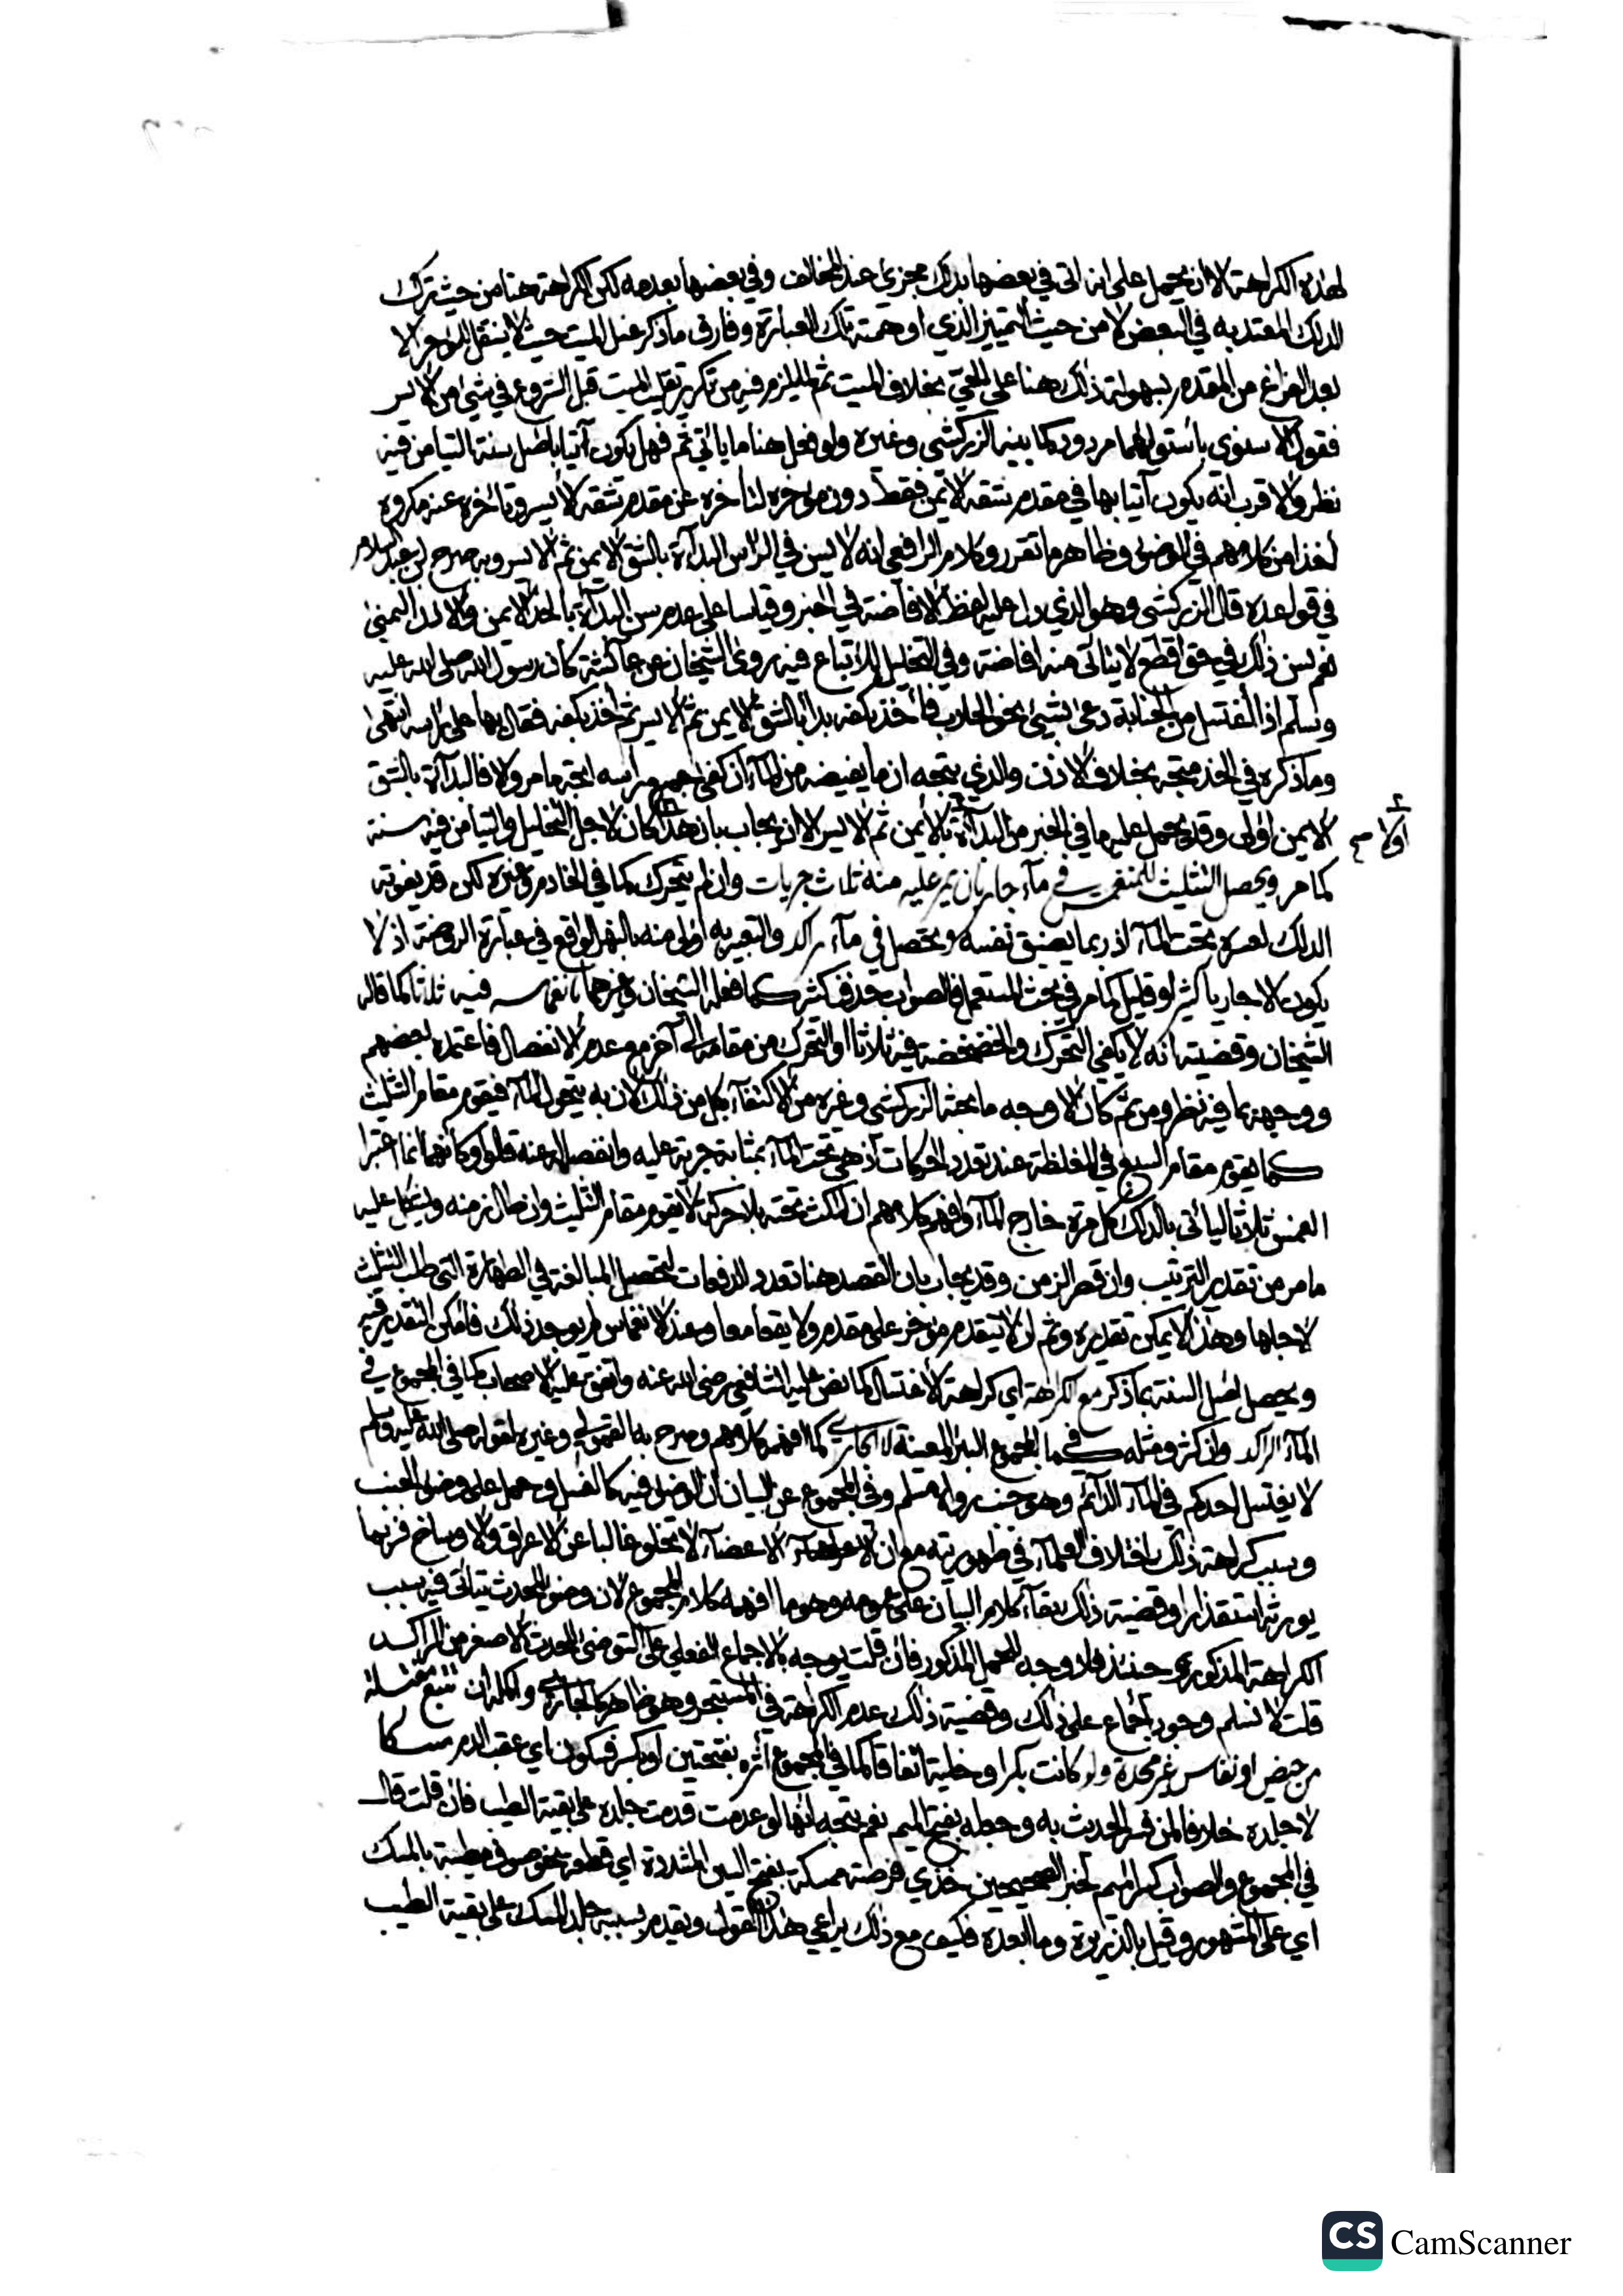 لهذه الكراهة الا ان يحمل على انه اتى في بعضها بدلك مجزئ عند المخالف وفي بعضها بعدمه لكن الكراهة هنا من حيث ترك
الدلك المعتد به في البعض لا من حيث التمييز الذي اوهمته تلك العبارة وفارق ما ذكر غسل الميت حيث لا ينتقل للمؤخر الا
بعد الفراغ من المقدم لسهولة ذلك هنا على الحي بخلاف الميت ثم لما يلزم فيه من تكرير تقليب الميت قبل الشروع في شيء من الايسر
فقول الاسنوي باستوائهما مردود كما بينه الزركشي وغيره ولو فعل هنا ما ياتي ثم فهل يكون آتيا باصل سنة التيامن فيه
نظر والاقرب انه يكون آتيا بها في مقدم شقه الايمن فقط دون مؤخره لتاخره عن مقدم شقه الايسر وتاخره عنه مكروه
اخذا من كلامهم في الوضوء وظاهر ما تقرر وكلام الرافعي انه لا يسن في الراس البداءة بالشق الايمن ثم الايسر وبه صرح ابن عبد السلام
في قواعده قال الزركشي وهو الذي دل عليه لفظ الافاضة في الخبر وقياسا على عدم سن البداءة بالخد الايمن والاذن اليمنى
نعم يسن ذلك في حق اقطع لا يتاتى منه افاضة وفي التخليل للاتباع فيه روى الشيخان عن عائشة كان رسول الله صلى الله عليه
وسلم اذا اغتسل من الجنابة دعى بشيء نحو الحلاب فاخذ بكفه بدأ بالشق الايمن ثم الايسر ثم اخذ بكفه فقال بها على راسه انتهى
وما ذكره في الخد متجه بخلاف الاذن والذي يتجه ان ما يفيضه من الماء ان كفى جميع راسه اتجه ما مر والا فالبداءة بالشق
الايمن اولى وقد يحمل عليه ما في الخبر من البداءة بالايمن ثم الايسر الا ان يجاب بان هذا كان لاجل التخليل والتيامن فيه سنة
اولا صح
كما مر ويحصل التثليث للمنغمس في ماء جار بان يمر عليه منه ثلاث جريات وان لم يتحرك كما في الخادم وغيره لكن قد يفوته
الدلك لعسره تحت الماء اذ ربما يضيق نفسه ويحصل في ماء راكد والتعبير به اولى منه بالنهر الواقع في عبارة الروضة اذ لا
يكون الا جاريا كثيرا او قليل كما مر في بحث المستعمل والصواب حذف كثير كما فعله الشيخان وغيرهما بانغماسه فيه ثلاثا كما قاله
الشيخان وقضيته انه لا يكفي التحرك والخضخضة فيه ثلاثا او التحرك من مقامه الى آخر مع عدم الانفصال فاعتمده بعضهم
ووجهه بما فيه نظر ومن ثم كان الاوجه ما بحثه الزركشي وغيره من الاكتفاء بكل من ذلك لان به يتحول الماء فيقوم مقام التثليث
كما يقوم مقام السبع في المغلظة عند تعدد الحركات اذ هي تحت الماء بمثابة جرية عليه وانفصاله عنه قالوا وكانهما انما اعتبرا
الغمس ثلاثا لياتي بالدلك كل مرة خارج الماء وافهم كلامهم ان المكث تحته بلا حركة لا يقوم مقام التثليث وان طال زمنه ويشكل عليه
ما مر من تقدير الترتيب وان قصر الزمن وقد يجاب بان القصد هنا تعدد الدفعات لتحصيل المبالغة في الطهارة التي طلب التثليث
لاجلها وهذا لا يمكن تقديره وثم ان لا يتقدم مؤخر على مقدم ولا يقعا معا وعند الانغماس لم يوجد ذلك فامكن التقدير فيه
ويحصل اصل السنة بما ذكر مع الكراهة اي كراهة الاغتسال كما نص عليه الشافعي رضى الله عنه واتفق عليه الاصحاب كما في المجموع في
الماء الراكد وان كثر ومثله كما في المجموع البئر المعينة لا الجاري كما افهمه كلامهم وصرح به القمولي وغيره لقوله صلى الله عليه وسلم
لا يغتسل احدكم في الماء الدائم وهو جنب رواه مسلم وفي المجموع عن البيان ان الوضوء فيه كالغسل وحمل على وضوء الجنب
وسبب كراهة ذلك اختلاف العلماء في طهوريته مع ان الاعضاء لا تخلو غالبا عن الاعراق والاوساخ فربما
يورثه استقذارا وقضية ذلك بقاء كلام البيان على عمومه وهو ما افهمه كلام المجموع لان وضوء المحدث يتاتى فيه سبب
الكراهة المذكور وحينئذ فلا وجه للحمل المذكور فان قلت يوجه بالاجماع الفعلي على التوضئ للحدث الاصغر من الراكد
قلت لا نسلم وجود اجماع على ذلك وقضية ذلك عدم الكراهة في المستبحر وهو ظاهر كالجاري واكمله ان تتبع مغتسلة
من حيض او نفاس غير محدة ولو كانت بكرا وخلية اتفاقا كما في المجموع اثره بفتحتين او بكسر فسكون اي عقب الدم مسكا
لا جلده خلافا لمن فسر الحديث به وجعله بفتح الميم نعم يتجه انها لو عدمت قدمت جلده على بقية الطيب فان قلت قال
في المجموع والصواب كسر الميم لخبر الصحيحين خذي فرصة ممسكة بفتح السين المشددة اي قطعة نحو صوف مطيبة بالمسك
اي على المشهور وقيل بالذريرة وما ابعده فكيف مع ذلك يراعى هذا القول ويقدم بسببه جلد المسك على بقية الطيب
CS CamScanner